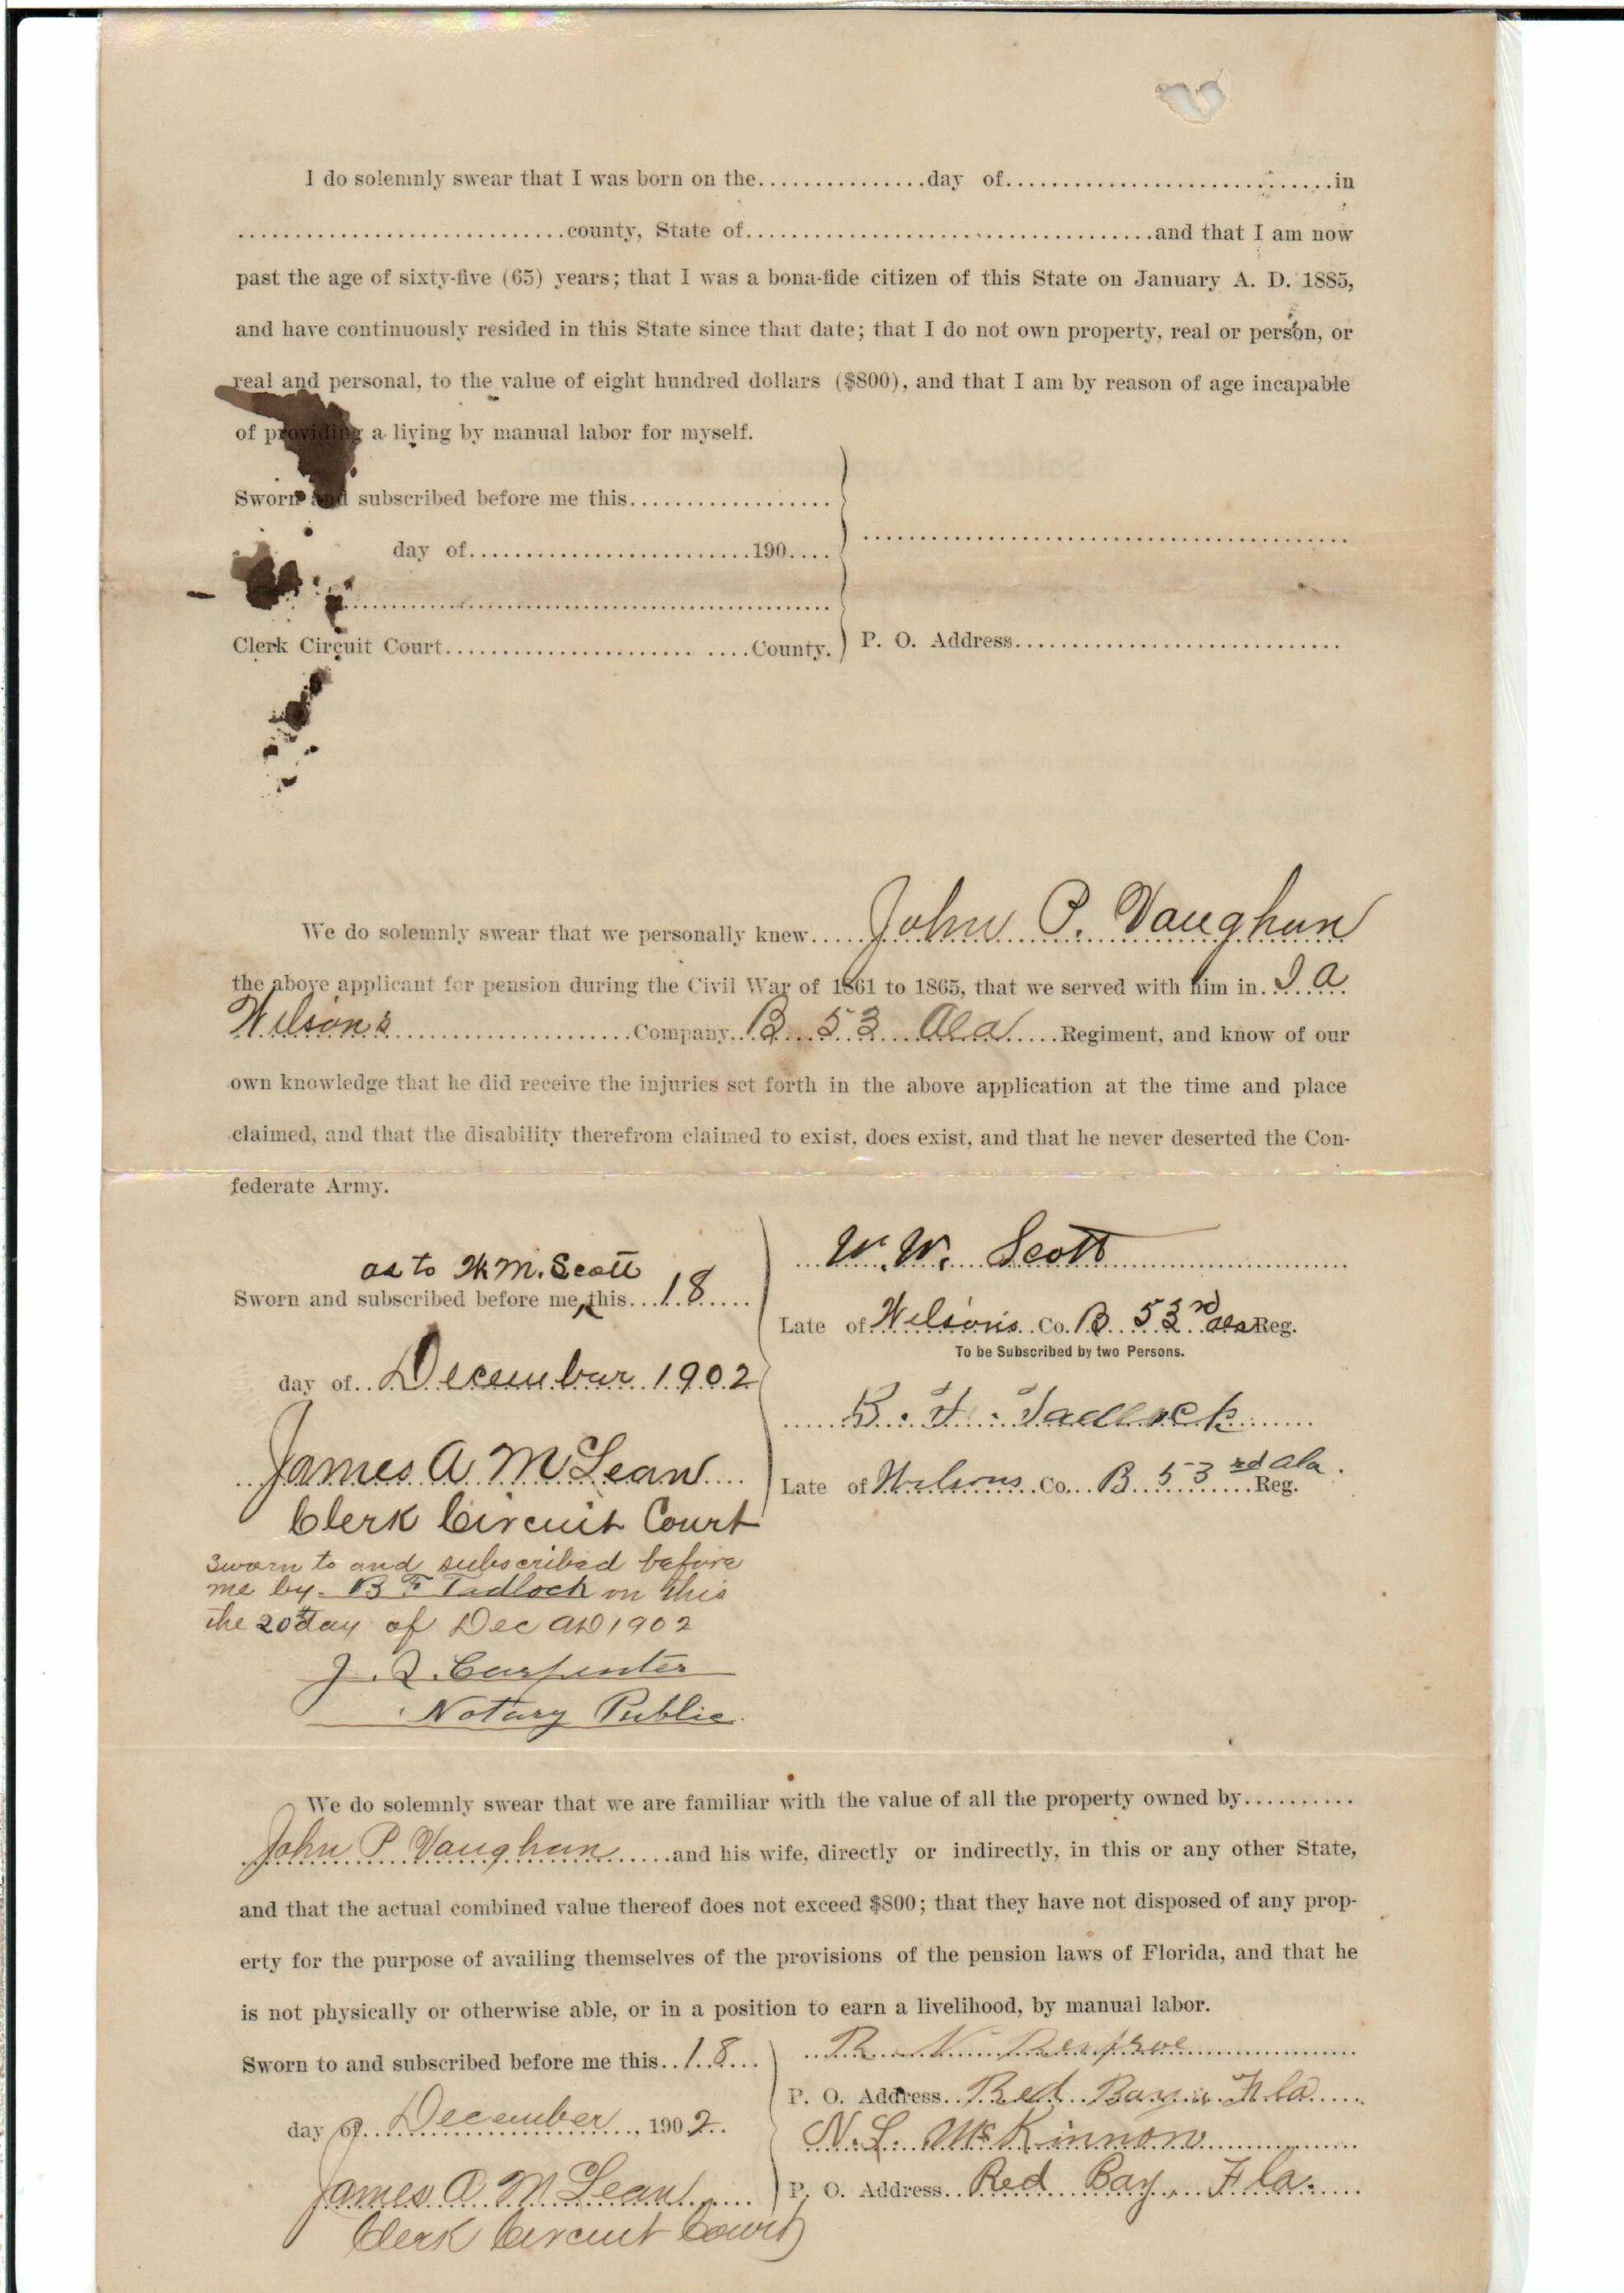 I do solemnly swear that I was born on the................day of................................in
................................county, State of........................................and that I am now
past the age of sixty-five (65) years; that I was a bona-fide citizen of this State on January A. D. 1885,
and have continuously resided in this State since that date; that I do not own property, real or person, or
real and personal, to the value of eight hundred dollars ($800), and that I am by reason of age incapable
of providing a living by manual labor for myself.
Sworn and subscribed before me this...................
day of...........................190....
Clerk Circuit Court............................County.
P. O. Address................................
We do solemnly swear that we personally knew..... John P. Vaughun
the above applicant for pension during the Civil War of 1861 to 1865, that we served with him in. J A
Wilson's........................Company. B 53 Ala .....Regiment, and know of our
own knowledge that he did receive the injuries set forth in the above application at the time and place
claimed, and that the disability therefrom claimed to exist, does exist, and that he never deserted the Con-
federate Army.
as to W. M. Scott
Sworn and subscribed before me, this... 18 .....
day of.. December 1902
James A McLean
Clerk Circuit Court
Sworn to and subscribed before
me by B F Tadlock on this
the 20th day of Dec AD 1902
J. L. Carpenter
Notary Public.
W. W. Scott
Late of Wilson's Co. B 53rd Ala Reg.
To be Subscribed by two Persons.
B. F. Tadlock
Late of Wilsons Co... B 53rd Ala. Reg.
We do solemnly swear that we are familiar with the value of all the property owned by..........
John P Vaughun ......and his wife, directly or indirectly, in this or any other State,
and that the actual combined value thereof does not exceed $800; that they have not disposed of any prop-
erty for the purpose of availing themselves of the provisions of the pension laws of Florida, and that he
is not physically or otherwise able, or in a position to earn a livelihood, by manual labor.
Sworn to and subscribed before me this.. 18 ...
day of December, 1902..
James A McLean
Clerk Circuit Court
R. N. Renfroe
P. O. Address.. Red Bay Fla
N. L. McKinnon
P. O. Address.. Red Bay, Fla.